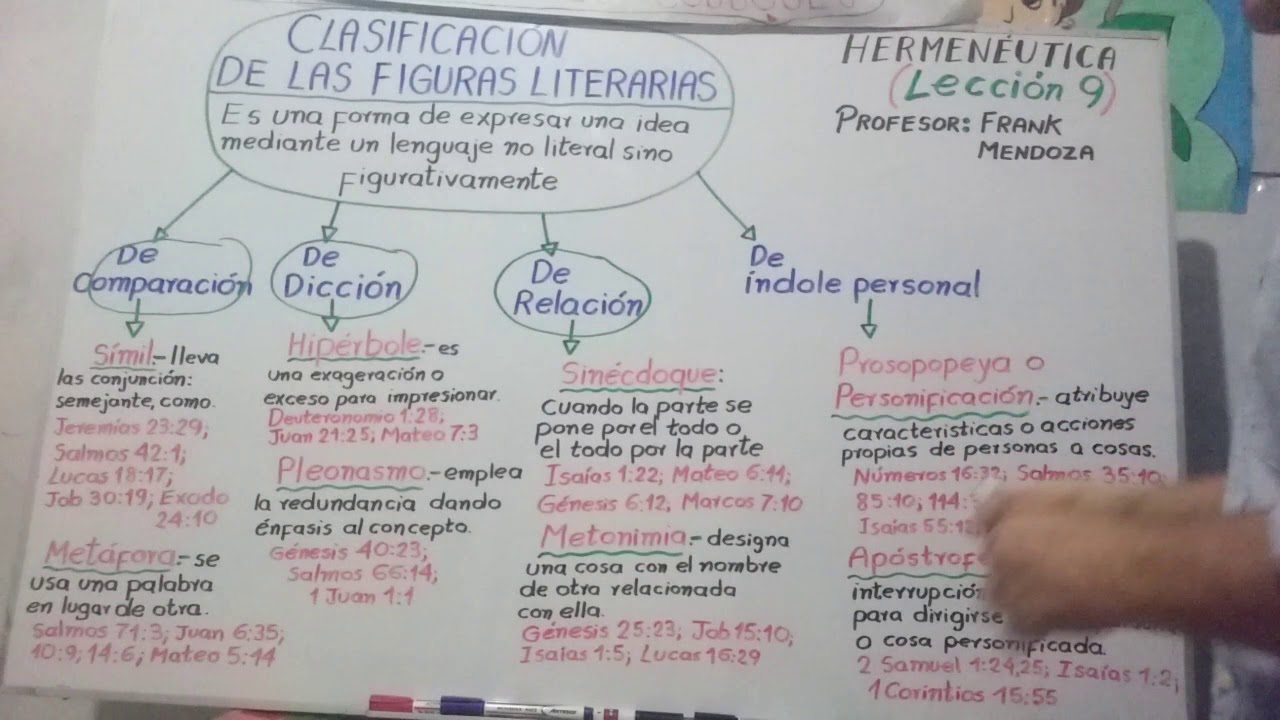 CLASIFICACIÓN
DE LAS FIGURAS LITERARIAS
Es una forma de expresar una idea
mediante un lenguaje no literal sino
Figurativamente
HERMENÉUTICA
(Lección 9)
PROFESOR: FRANK
MENDOZA
De
Comparación
Símil.- lleva
las conjunción:
semejante, como.
Jeremías 23:29;
Salmos 42:1;
Lucas 18:17;
Job 30:19; Exodo
24:10
Metáfora.- se
usa una palabra
en lugar de otra.
Salmos 71:3; Juan 6:35;
10:9; 14:6; Mateo 5:14
De
Dicción
Hipérbole.- es
una exageración o
exceso para impresionar.
Deuteronomio 1:28;
Juan 21:25; Mateo 7:3
Pleonasmo.- emplea
la redundancia dando
énfasis al concepto.
Génesis 40:23;
Salmos 66:14;
1 Juan 1:1
De
Relación
Sinécdoque:
Cuando la parte se
pone por el todo o
el todo por la parte
Isaías 1:22; Mateo 6:11;
Génesis 6:12, Marcos 7:10
Metonimia.- designa
una cosa con el nombre
de otra relacionada
con ella.
Génesis 25:23; Job 15:10;
Isaias 1:5; Lucas 16:29
De
índole personal
Prosopopeya o
Personificación.- atribuye
caracteristicas o acciones
propias de personas a cosas.
Números 16:32; Salmos 35:10
85:10; 114:
Isaias 55:12
Apóstrofe
interrupción
para dirigirse
o cosa personificada.
2 Samuel 1:24,25; Isaías 1:2;
1 Corintios 15:55